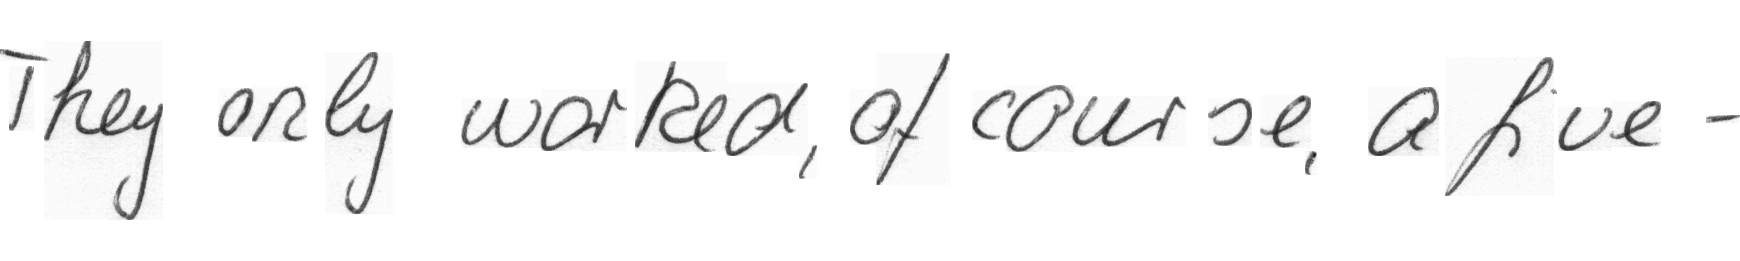 They only worked, of course, a five-